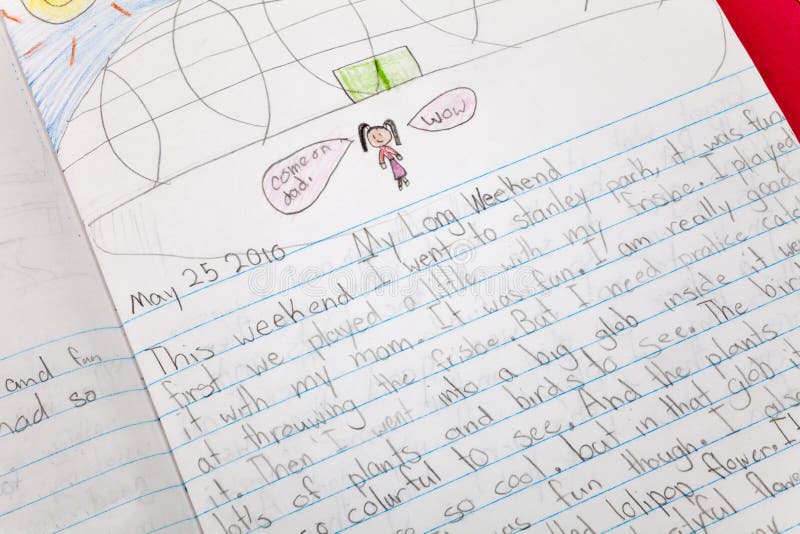 come on
dad.
WOW
May 25 2010 My Long Weekend
This weekend I went to stanley park, it was fun
first we played a little with my frisbe. I played
it with my mom. It was fun. I am really good
at throuwing the frisbe. But I need pratice catc
it. Then I went into a big glob inside it we
lot's of plants and birds to see. The bir
so colorful to see. And the plants
so cool. but in that glob it
as fun though. I also
lled lolipop flower. I l
flowe
my
and fun
had so